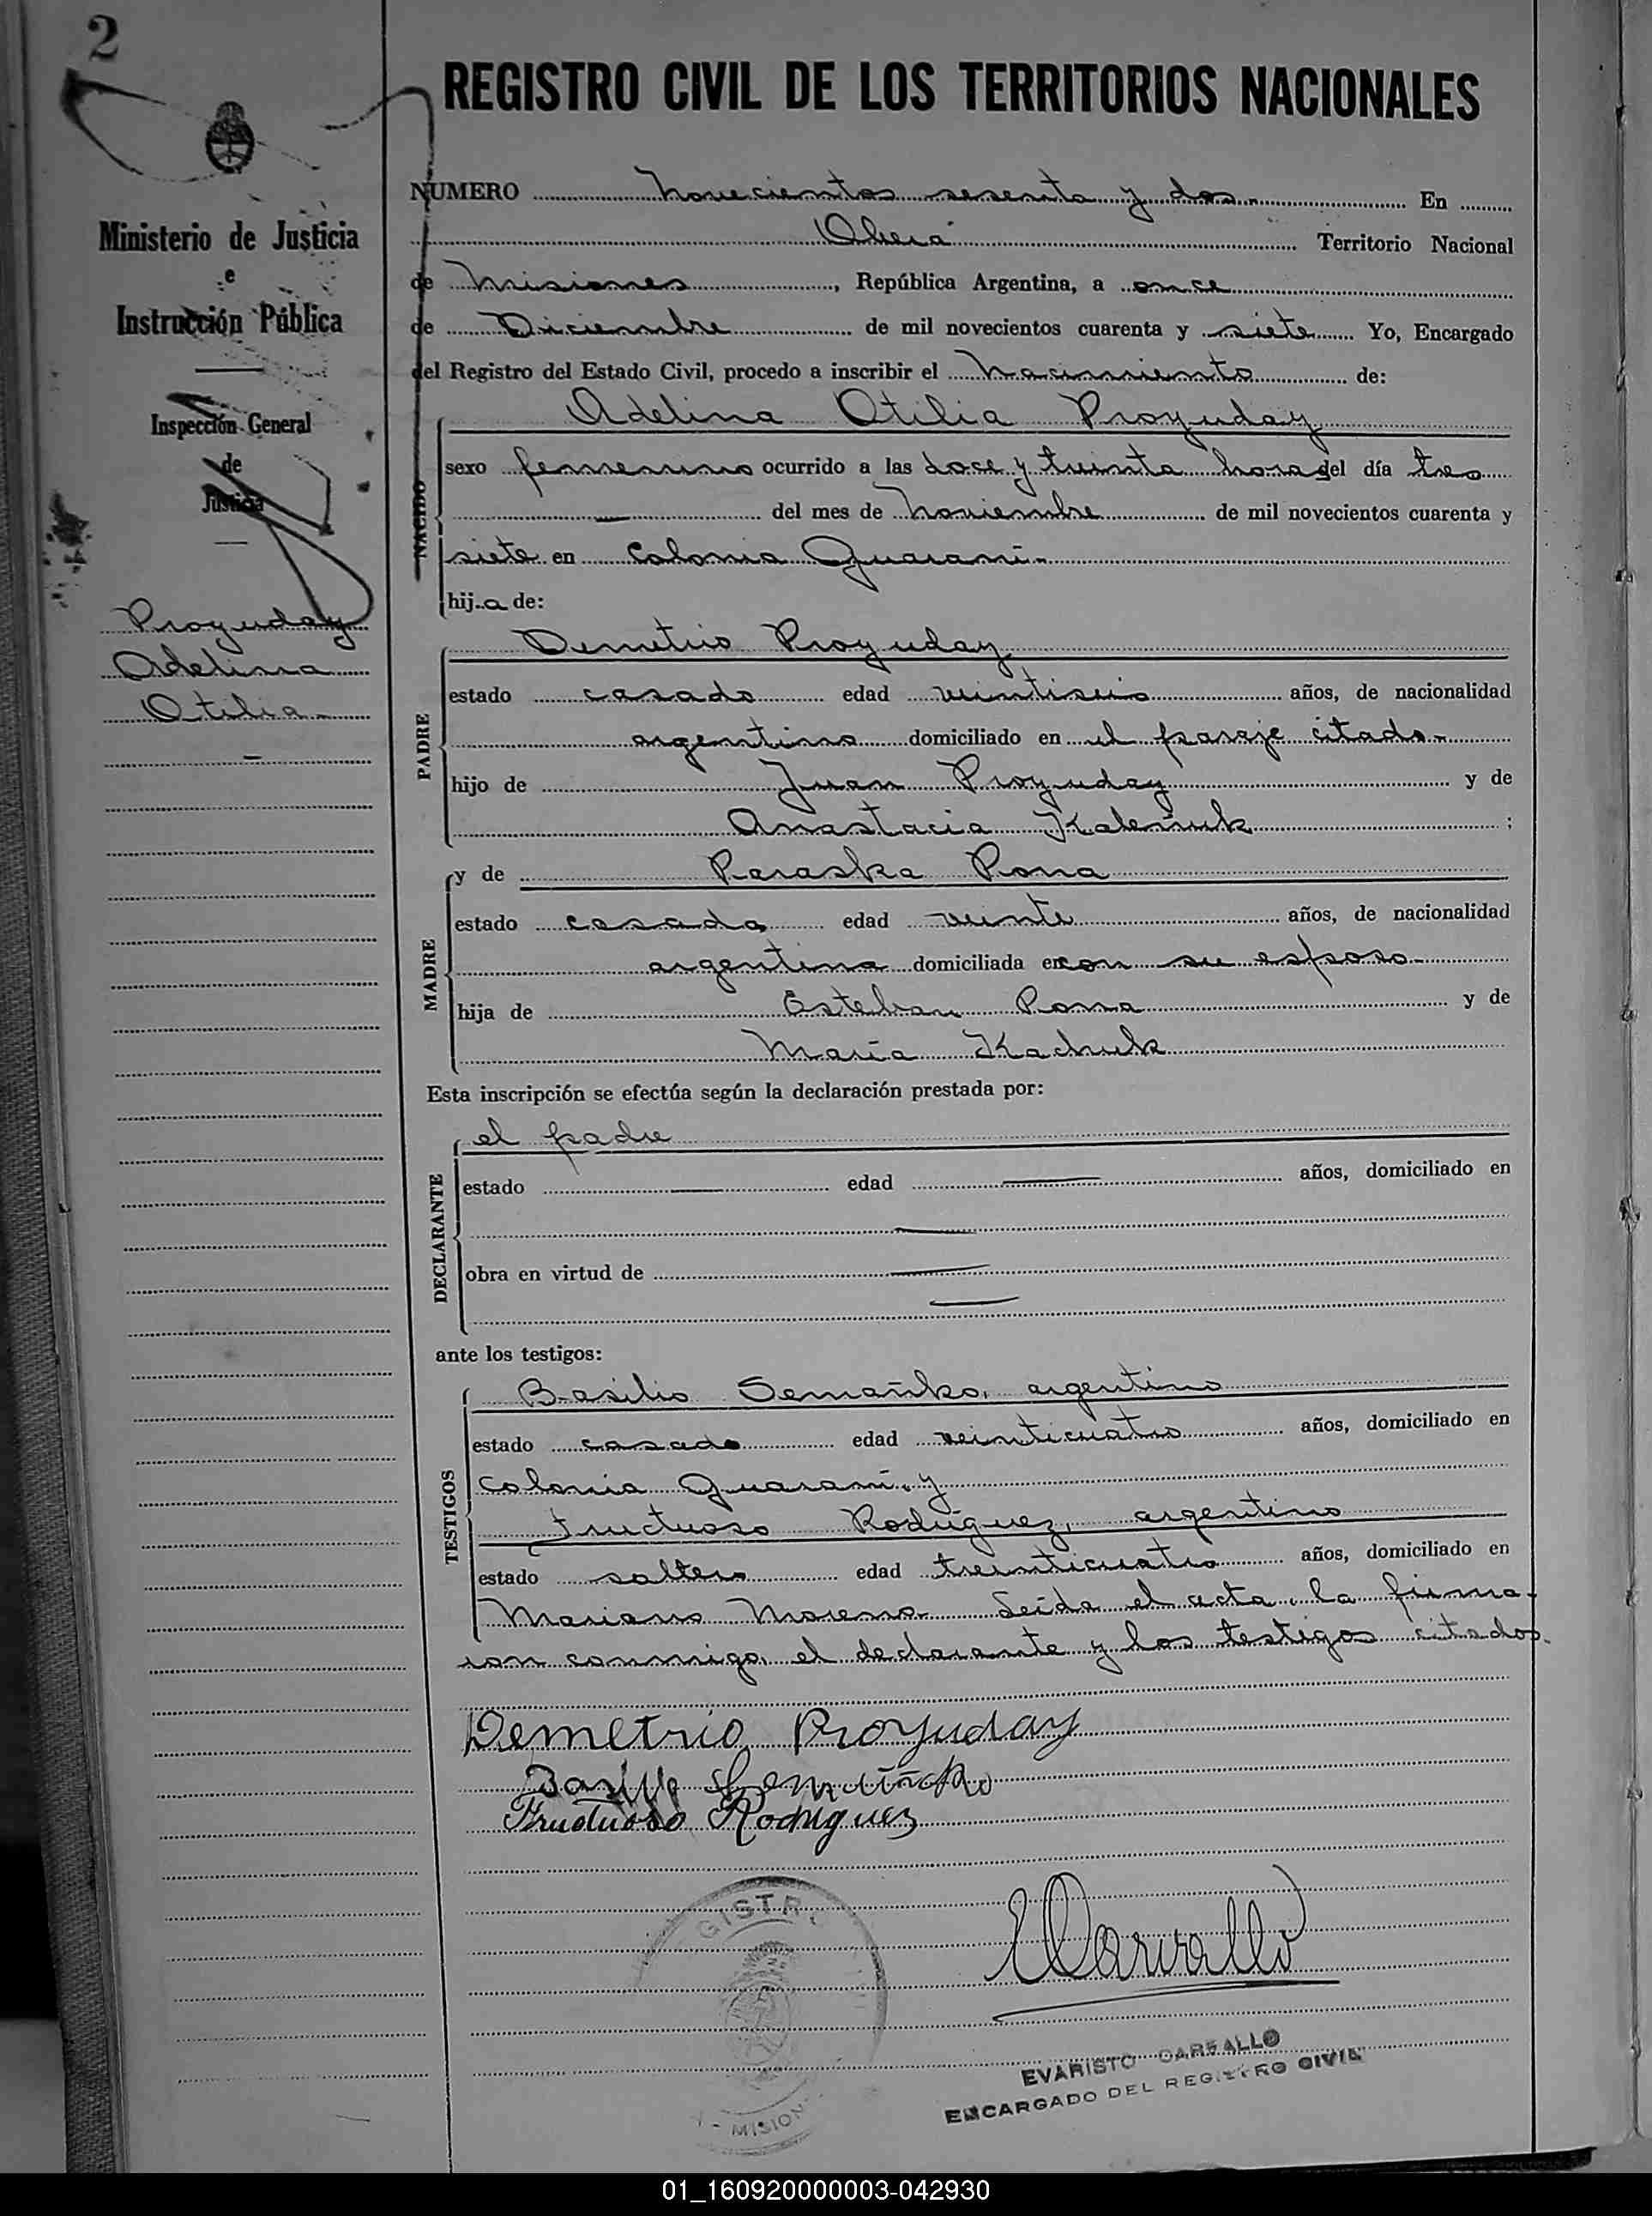 2
REGISTRO CIVIL DE LOS TERRITORIOS NACIONALES
Ministerio de Justicia
e
Instrucción Pública
Inspección General
de
Justicia
Proyuday
Adelina
Otilia
NUMERO novecientos sesenta y dos En
Oberá Territorio Nacional
de Misiones, República Argentina, a once
de Diciembre de mil novecientos cuarenta y siete Yo, Encargado
del Registro del Estado Civil, procedo a inscribir el nacimiento de:
NACIDO
Adelina Otilia Proyuday
sexo femenino ocurrido a las doce y treinta horas del día tres
— del mes de Noviembre de mil novecientos cuarenta y
siete en Colonia Guaraní
hija de:
PADRE
Demetrio Proyuday
estado casado edad veintiseis años, de nacionalidad
argentino domiciliado en el paraje citado
hijo de Juan Proyuday y de
Anastacia Kaleñuk;
MADRE
y de Paraska Rona
estado casada edad veinte años, de nacionalidad
argentina domiciliada en con su esposo
hija de Esteban Rona y de
María Kachuk
Esta inscripción se efectúa según la declaración prestada por:
DECLARANTE
el padre
estado — edad — años, domiciliado en
—
obra en virtud de —
—
ante los testigos:
TESTIGOS
Basilio Semañko, argentino
estado casado edad veinticuatro años, domiciliado en
Colonia Guaraní, y
Fructuoso Rodríguez, argentino
estado soltero edad treinticuatro años, domiciliado en
Mariano Moreno. Leída el acta, la firma-
ron conmigo, el declarante y los testigos citados.
Demetrio Proyuday
Basilio Semañcko
Fructuoso Rodriguez
GISTR
MISION
ECarvallo
EVARISTO CARVALLO
ENCARGADO DEL REGISTRO CIVIL
01_160920000003-042930